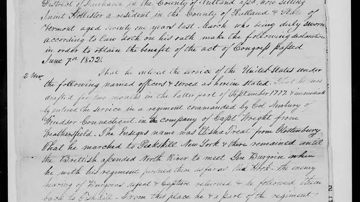 District of Rutland in the County of Rutland afsd. now setting
Hollister a resident in the County of Rutland & State of
Vermont aged seventy six years last March who being duly sworn
according to law doth on his oath make the following
in order to obtain the benefit of the act of Congress passed
June 7th 1832.
That he entered the service of the United States under
the following named officers & served as herein stated. That he was
drafted for two months in the latter part of September 1777 &
entered the service in a regiment commanded by Col Newbury of
Windsor Connecticut in the company of Capt Wright from
Weathersfield. The Ensigns name was Elisha Treat from Glastenbury
That he marched to Peekskill New York & there remained until
the British ascended North River to meet Gen Burgoine when
he with his regiment the enemy
hearing of Burgoines returned & he followed them
back to Peekskill. From this place he & a part of the regiment